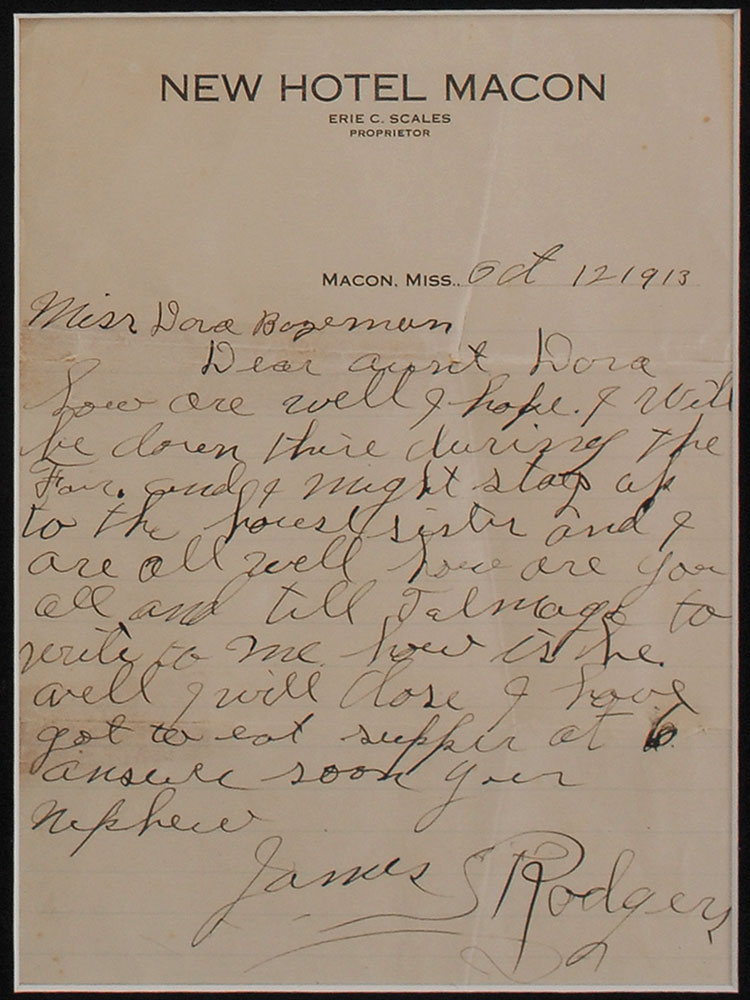 NEW HOTEL MACON
ERIE C. SCALES
PROPRIETOR
MACON, MISS., Oct 12 1913
Miss Dora Bozeman
Dear aunt Dora
how are well I hope. I will
be down there during the
Fair. and I might stay up
to the house sister and I
are all well how are you
all and tell Talmage to
write to me how is he
well I will close I have
got to eat supper at 6
answer soon your
Nephew
James Rodgers